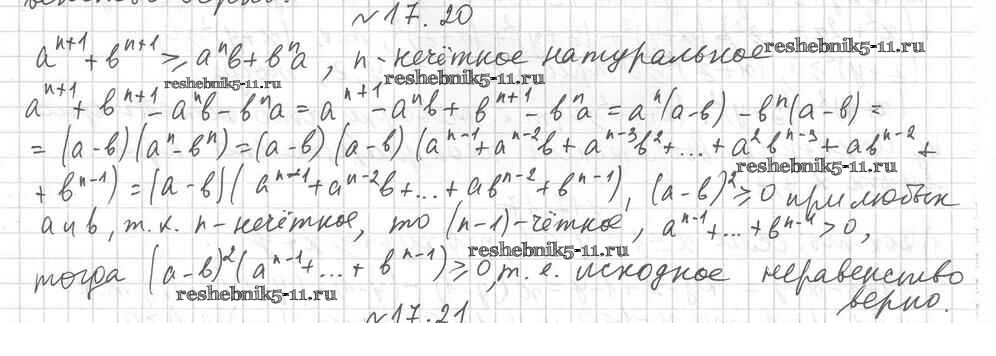 №17.20
aⁿ⁺¹ + вⁿ⁺¹ ⩾ aⁿв + вⁿa, n - нечётное натуральное
reshebnik5-11.ru
reshebnik5-11.ru
reshebnik5-11.ru
aⁿ⁺¹ + вⁿ⁺¹ - aⁿв - вⁿa = aⁿ⁺¹ - aⁿв + вⁿ⁺¹ - вⁿa = aⁿ(a-в) - вⁿ(a-в) =
= (a-в)(aⁿ-вⁿ) = (a-в)(a-в)(aⁿ⁻¹ + aⁿ⁻²в + aⁿ⁻³в² + ... + a²вⁿ⁻³ + aвⁿ⁻² +
reshebnik5-11.ru
+ вⁿ⁻¹) = (a-в)(aⁿ⁻¹ + aⁿ⁻²в + ... + aвⁿ⁻² + вⁿ⁻¹), (a-в)² ⩾ 0 при любых
a и в, т.к. n - нечётное, то (n-1) - чётное, aⁿ⁻¹ + ... + вⁿ⁻¹ > 0,
reshebnik5-11.ru
тогда (a-в)²(aⁿ⁻¹ + ... + вⁿ⁻¹) ⩾ 0, т.е. исходное неравенство
reshebnik5-11.ru
верно.
№17.21